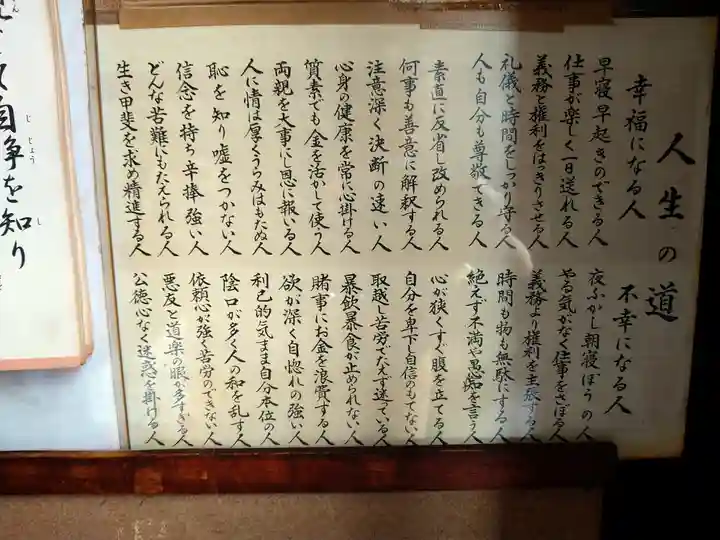 人生の道
幸福になる人
早寝早起きのできる人
仕事が楽しく一日送れる人
義務と権利をはっきりさせる人
礼儀と時間をしっかり守る人
人も自分も尊敬できる人
素直に反省し改められる人
何事も善意に解釈する人
注意深く決断の速い人
心身の健康を常に心掛ける人
質素でも金を活かして使う人
両親を大事にし恩に報いる人
人に情は厚くうらみはもたぬ人
恥を知り嘘をつかない人
信念を持ち辛捧強い人
どんな苦難にもたえられる人
生き甲斐を求め精進する人
不幸になる人
夜ふかし朝寝ぼうの人
やる気がなく仕事をさぼる人
義務より権利を主張する人
時間も物も無駄にする人
絶えず不満や愚痴を言う人
心が狭くすぐ腹を立てる人
自分を卑下し自信のもてない人
取越し苦労でたえず迷っている人
暴飲暴食が止められない人
賭事にお金を浪費する人
欲が深く自惚れの強い人
利己的気まま自分本位の人
陰口が多く人の和を乱す人
依頼心が強く苦労のできない人
悪友と道楽の暇が多すぎる人
公徳心なく迷惑を掛ける人
自浄を知り
じじょう
し